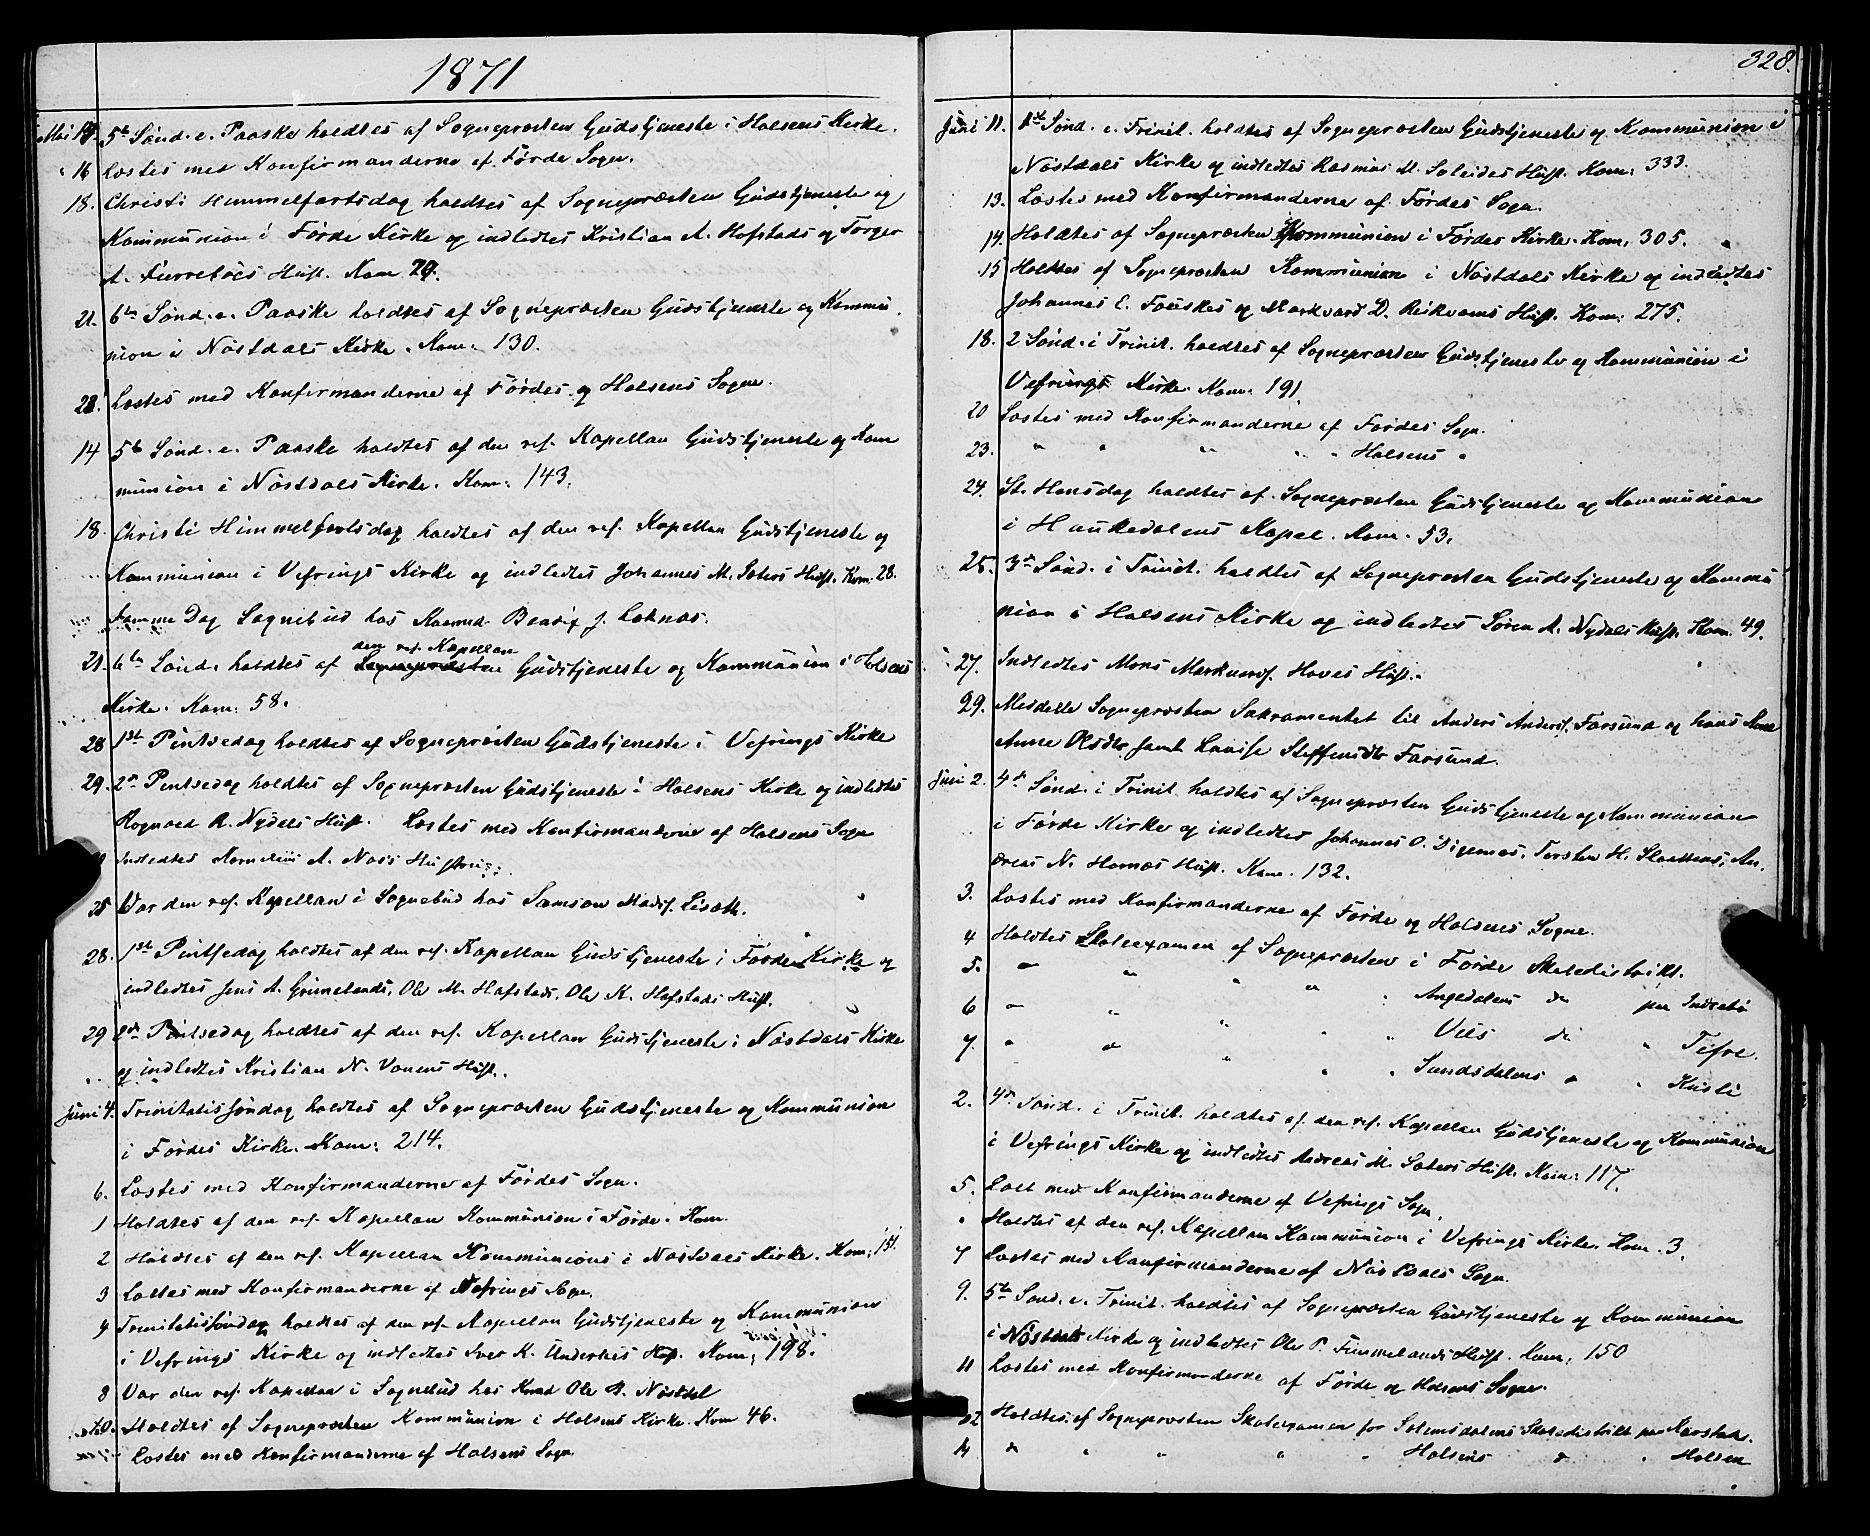 1871
Mai 14. 5te Sønd. e. Paaske holdtes af Sognepræsten Gudstjeneste i Holsens Kirke.
" 16 Læstes med Konfirmanderne af Førde Sogn.
18. Christi Himmelfartsdag holdtes af Sognepræsten Gudstjeneste og
Kommunion i Førde Kirke og indledtes Kristian A. Hofstads og Torger
A. Hust. Kom
21. 6te Sønd. e. Paaske holdtes af Sognepræsten Gudstjeneste og Kommu
nion i Nöstdals Kirke. Kom. 130.
Læstes med Konfirmanderne af Førdes og Holsens Sogne.
14 5te Sønd. e. Paaske holdtes af den res. Kapellan Gudstjeneste og Kom
munion i Nöstdals Kirke. Kom. 143.
18. Christi Himmelfartsdag holdtes af den res. Kapellan Gudstjeneste og
Kommunion i Vefrings Kirke og indledtes Johannes M. Sæters Hust. Kom. 28.
Samme Dag Sognebud hos J.
den res. Kapellan
21. 6te Sønd. holdtes af Sognepræsten Gudstjeneste og Kommunion i Holsens
Kirke. Kom. 58.
28 1ste Pintsedag holdtes af Sognepræsten Gudstjeneste i Vefrings Kirke
29. 2den Pintsedag holdtes af Sognepræsten Gudstjeneste i Holsens Kirke og indledtes
Rognald R. Nydals Hust. Læstes med Konfirmanderne af Holsens Sogn
Indledtes Kornelius A. Hustru
25 Var den res. Kapellan i Sognebud hos Samson Mads.
28. 1ste Pintsedag holdtes af den res. Kapellan Gudstjeneste i Førde Kirke og
indledtes Jens A. Grimelands, Ole M. Hafstads, Ole K. Hafstads Hust.
29 2den Pintsedag holdtes af den res. Kapellan Gudstjeneste i Nöstdals Kirke
og indledtes Kristian N. Vonens Hust.
Juni 4. Trinitatissöndag holdtes af Sognepræsten Gudstjeneste og Kommunion
i Førdes Kirke. Kom. 214.
6. Læstes med Konfirmanderne af Førdes Sogn.
1 Holdtes af den res. Kapellan Kommunion i Førde. Kom.
2 Holdtes af den res. Kapellan Kommunions i Nöstdals Kirke. Kom. 151.
3 Læstes med Konfirmanderne af Vefrings Sogn.
4 Trinitatissöndag holdtes af den res. Kapellan Gudstjeneste og Kommunion
i Vefrings Kirke og indledtes Iver K. Hust. Kom. 198.
8 Var den res. Kapellan i Sognebud hos Ole B. Nöstdal
10. Holdtes af Sognepræsten Kommunion i Holsens Kirke. Kom 46.
Læstes med Konfirmanderne af Holsens Sogn
328.
Juni 11. 1ste Sønd. e. Trinit. holdtes af Sognepræsten Gudstjeneste og Kommunion i
Nöstdals Kirke og indledtes Rasmus M. Soleides Hust. Kom. 333.
13. Læstes med Konfirmanderne af Førdes Sogn.
14. Holdtes af Sognepræsten Kommunion i Førdes Kirke. Kom. 305.
15 Holdtes af Sognepræsten Kommunion i Nöstdals Kirke og indledtes
Johannes E. og Markvard D. Hust. Kom. 275.
18. 2 Sønd. i Trinit. holdtes af Sognepræsten Gudstjeneste og Kommunion i
Vefrings Kirke. Kom. 191
20 Læstes med Konfirmanderne af Førdes Sogn.
23. " " " " " Holsens "
24. St. Hansdag holdtes af Sognepræsten Gudstjeneste og Kommunion
i Haukedalens Kapel. Kom. 53.
25. 3die Sønd. i Trinit. holdtes af Sognepræsten Gudstjeneste og Kommu
nion i Holsens Kirke og indledtes Søren A. Nydals Hust. Kom. 49.
27. Indledtes Mons Markvards. Hoves Hust.
29. Meddelte Sognepræsten Sakramentet til Anders Anders. Farsund og hans
Anne Olsdtr. samt Lovise Steffensdtr. Farsund.
Juni 2. 4de Sønd. i Trinit. holdtes af Sognepræsten Gudstjeneste og Kommunion
i Førde Kirke og indledtes Johannes O. Digernæs, Torsten H. An-
dreas N. Hornæs Hust. Kom. 132.
3. Læstes med Konfirmanderne af Førde og Holsens Sogne.
4 Holdtes Skoleexamen af Sognepræsten i Førde Skoledistrikt.
5. " " " " " Angedalens do paa Indrebö
6 " " " " " Viës do "
7. " " " " " Sundsdalens " "
2. 4de Sønd. i Trinit. holdtes af den res. Kapellan Gudstjeneste og Kommunion
i Vefrings Kirke og indledtes Andreas M. Sæters Hust. Kom. 117.
5. Læst med Konfirmanderne af Vefrings Sogn.
" Holdtes af den res. Kapellan Kommunion i Vefrings Kirke. Kom. 3.
7 Læstes med Konfirmanderne af Nöstdals Sogn.
9. 5te Sønd. e. Trinit. holdtes af Sognepræsten Gudstjeneste og Kommunion
i Nöstdals Kirke og indledtes Ole P. Fimmelands Hust. Kom. 150
11 Læstes med Konfirmanderne af Førde og Holsens Sogne.
12 Holdtes af Sognepræsten Skoleexamen for Skoledistrikt paa Karstad.
" " " " " Holsens do " Holsen